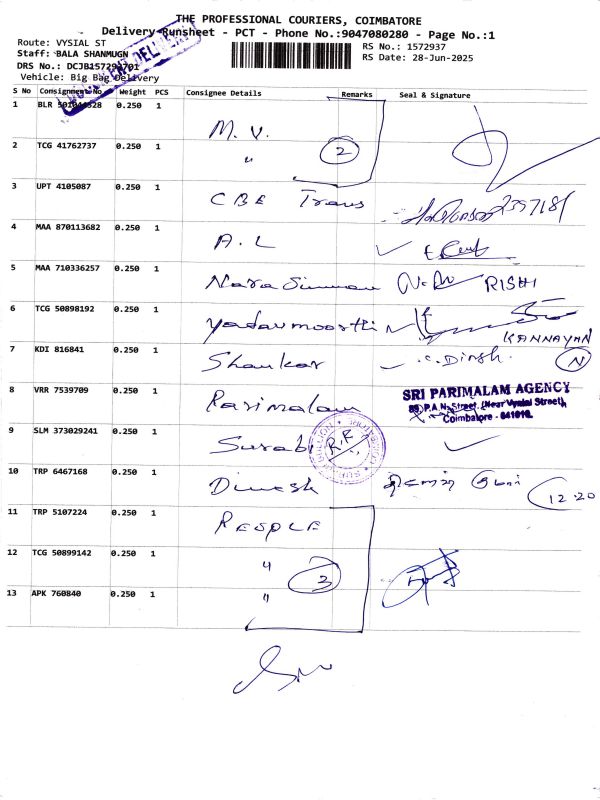 THE PROFESSIONAL COURIERS, COIMBATORE
Delivery Runsheet - PCT - Phone No.:9047080280 - Page No.:1
Route: VYSIAL ST
RS No.: 1572937
Staff: BALA SHANMUGN
RS Date: 28-Jun-2025
DRS No.: DCJB157293701
Vehicle: Big Bag Delivery
S No Consignment No Weight PCS Consignee Details Remarks Seal & Signature
1 BLR 0.250 1 M. V.
2 TCG 41762737 0.250 1 " 2
3 UPT 4105087 0.250 1 CBE Trans
4 MAA 870113682 0.250 1 A. L
5 MAA 710336257 0.250 1 RISHI
6 TCG 50898192 0.250 1 Yadavmoorthi KANNAYAN
7 KDI 816841 0.250 1 Shankar C. Dinsh. N
8 VRR 7539709 0.250 1 Parimalam SRI PARIMALAM AGENCY
89, P.A.N. Street, (Near Vysial Street),
Coimbatore - 641010.
9 SLM 373029241 0.250 1 Surabi R.R
10 TRP 6467168 0.250 1 Dinesh 12.20
11 TRP 5107224 0.250 1 PEOPLE
12 TCG 50899142 0.250 1 " 3
13 APK 760840 0.250 1 "